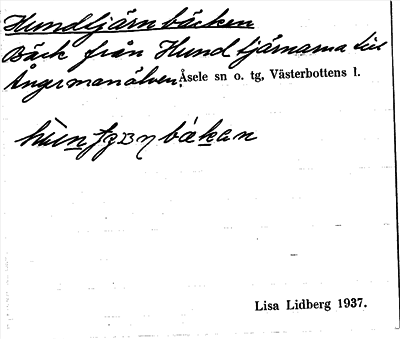 Hundtjärnbäcken
Bäck från Hundtjärnarna till
Ångermanälven. Åsele sn o. tg, Västerbottens l.
Lisa Lidberg 1937.